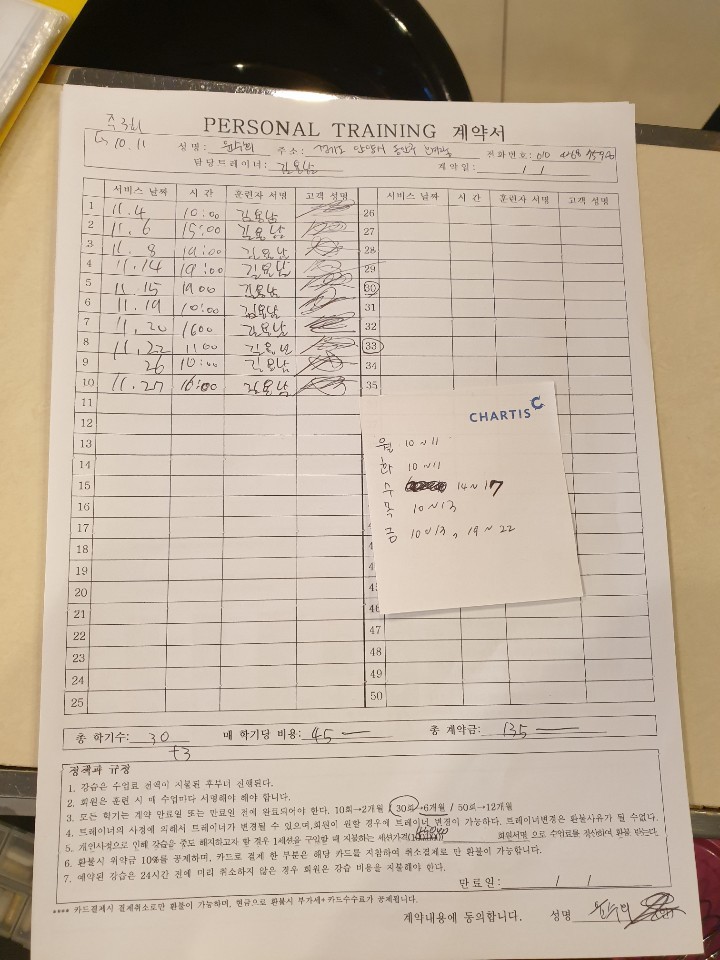 주 3회
PERSONAL TRAINING 계약서
10.11 성명: 주소: 경기도 안양시 동안구 전화번호: 010
담당트레이너: 김용남 계약일: / /
서비스 날짜 시 간 훈련자 서명 고객 성명 서비스 날짜 시 간 훈련자 서명 고객 성명
1 11.4 10:00 김용남 26
2 11.6 15:00 김용남 27
3 11.8 19:00 김용남 28
4 11.14 19:00 김용남 29
5 11.15 1900 김용남 30
6 11.19 10:00 김용남 31
7 11.20 1600 김용남 32
8 11.22 1100 김용남 33
9 26 10:00 김용남 34
10 11.27 16:00 김용남 35
11
12
13
14
15
16
17
18
19
20
21 47
22
23 48
24 49
25 50
CHARTIS
월 10~11
화 10~11
수 14~17
목 10~13
금 10~13, 19~22
총 학기수: 30 매 학기당 비용: 45 총 계약금: 135
+3
정책과 규정
1. 강습은 수업료 전액이 지불된 후부터 진행된다.
2. 회원은 훈련 시 매 수업마다 서명해야 해야 합니다.
3. 모든 학기는 계약 만료일 또는 만료일 전에 완료되어야 한다. 10회→2개월 / 30회→6개월 / 50회→12개월
4. 트레이너의 사정에 의해서 트레이너가 변경될 수 있으며,회원이 원할 경우에 트레이너 변경이 가능하다. 트레이너변경은 환불사유가 될 수없다.
5. 개인사정으로 인해 강습을 중도 해지하고자 할 경우 1세션을 구입할 때 지불하는 세션가격( 회원서명 으로 수업료를 정산하여 환불 받는다.
6. 환불시 위약금 10%를 공제하며, 카드로 결제 한 부분은 해당 카드를 지참하여 취소결제로 만 환불이 가능합니다.
7. 예약된 강습은 24시간 전에 미리 취소하지 않은 경우 회원은 강습 비용을 지불해야 한다.
만료일: / /
**** 카드결제시 결제취소로만 환불이 가능하며, 현금으로 환불시 부가세+카드수수료가 공제됩니다.
계약내용에 동의합니다. 성명